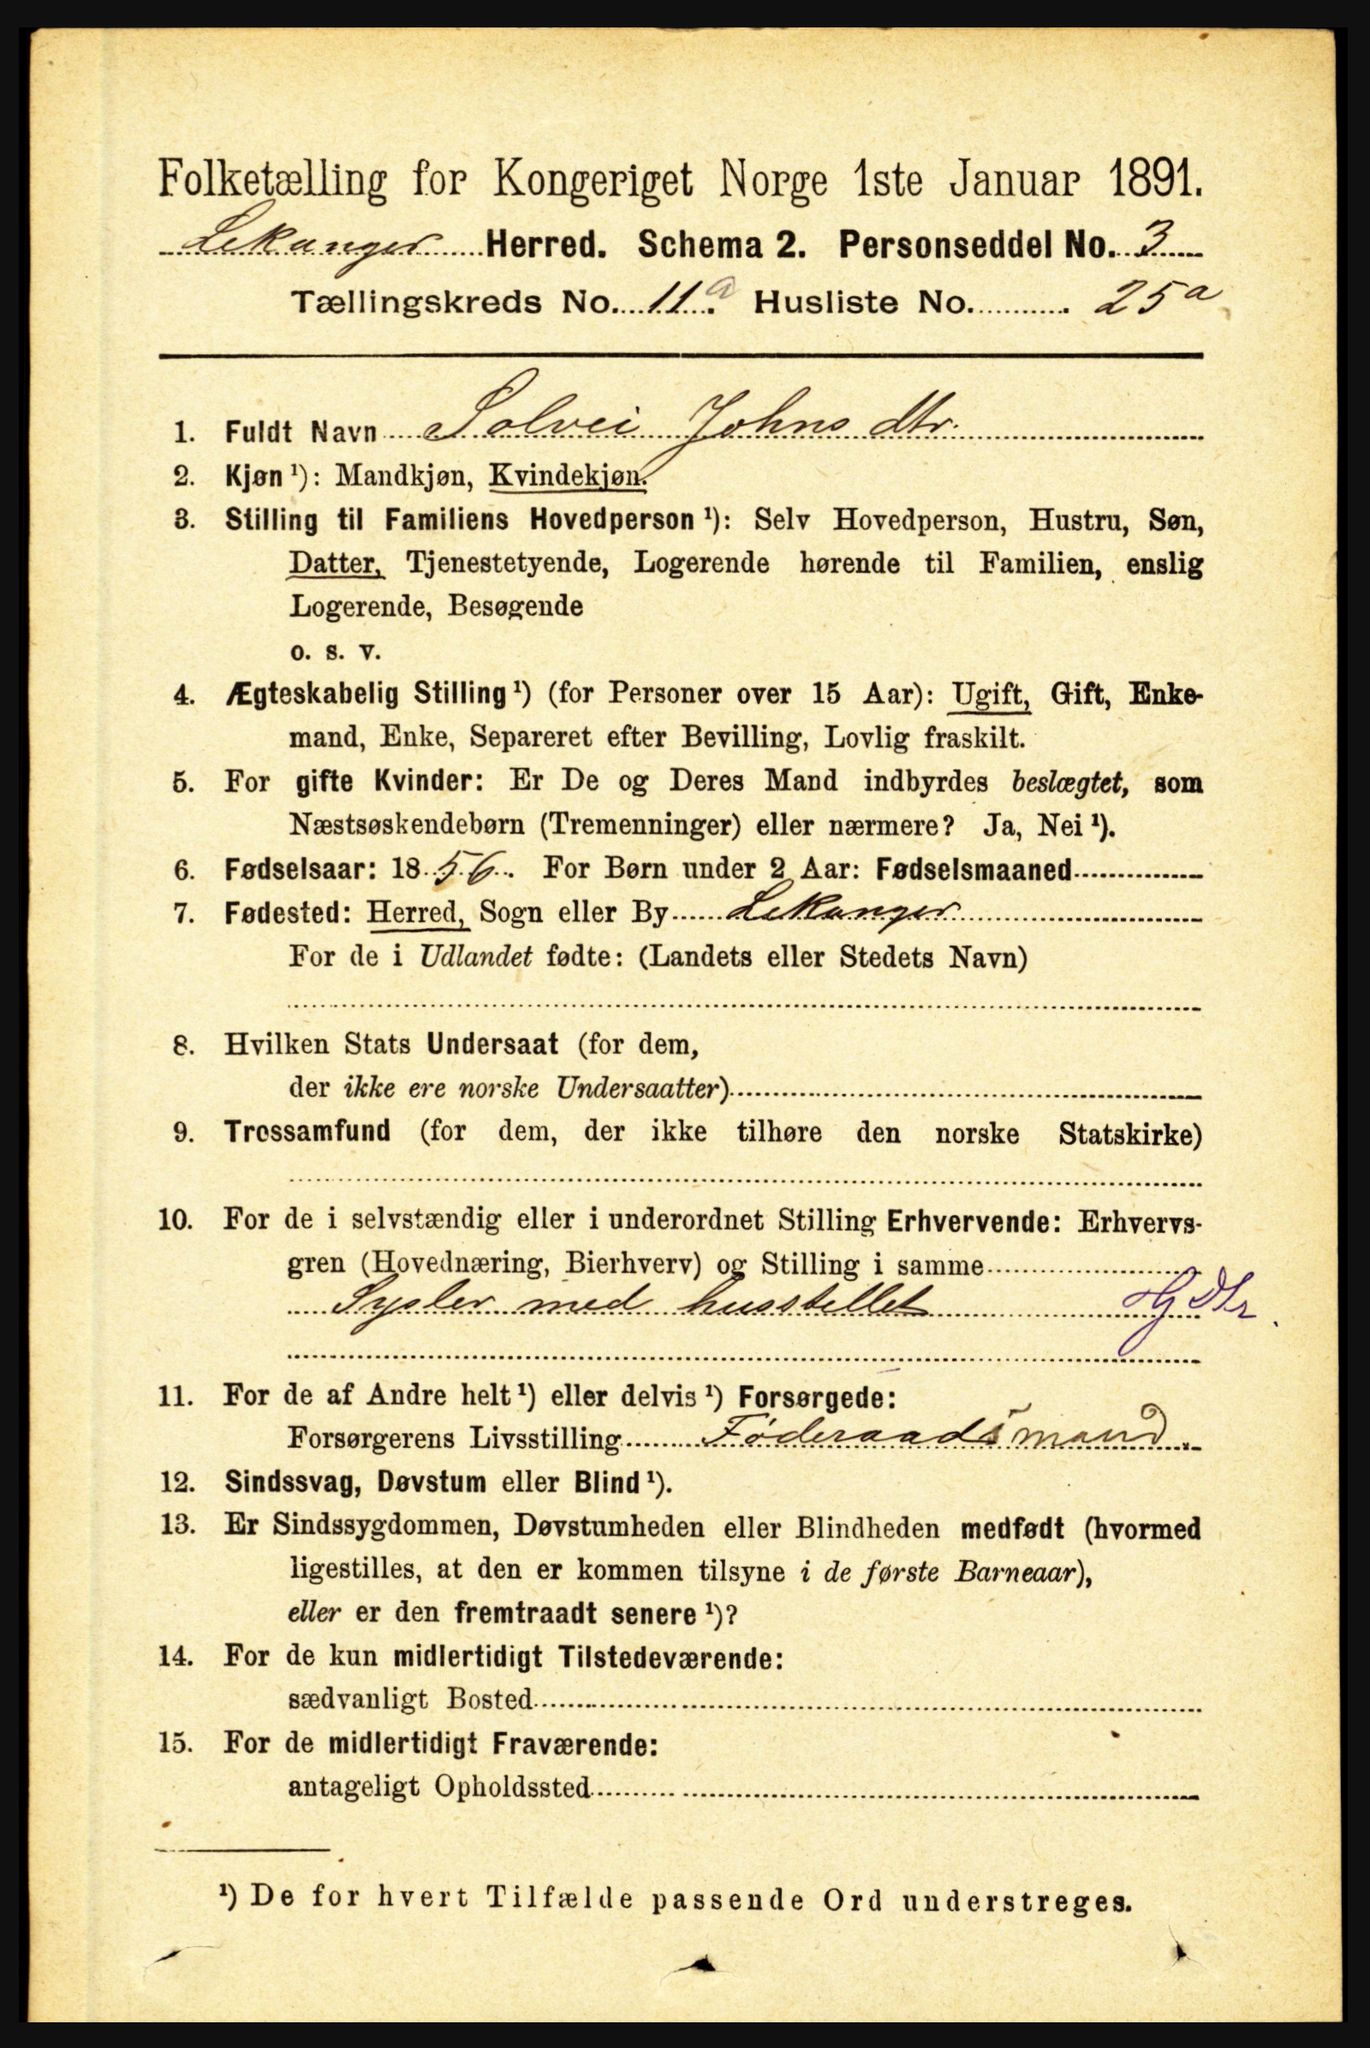 Folketælling for Kongeriget Norge 1ste Januar 1891.
Lekanger Herred. Schema 2. Personseddel No. 3
Tællingskreds No. 11a. Husliste No. 25a
1. Fuldt Navn Solvei Johns dtr.
2. Kjøn ¹): Mandkjøn, Kvindekjøn.
3. Stilling til Familiens Hovedperson ¹): Selv Hovedperson, Hustru, Søn,
Datter, Tjenestetyende, Logerende hørende til Familien, enslig
Logerende, Besøgende
o. s. v.
4. Ægteskabelig Stilling ¹) (for Personer over 15 Aar): Ugift, Gift, Enke-
mand, Enke, Separeret efter Bevilling, Lovlig fraskilt.
5. For gifte Kvinder: Er De og Deres Mand indbyrdes beslægtet, som
Næstsøskendebørn (Tremenninger) eller nærmere? Ja, Nei ¹).
6. Fødselsaar: 1856. For Børn under 2 Aar: Fødselsmaaned
7. Fødested: Herred, Sogn eller By Lekanger
For de i Udlandet fødte: (Landets eller Stedets Navn)
8. Hvilken Stats Undersaat (for dem,
der ikke ere norske Undersaatter)
9. Trossamfund (for dem, der ikke tilhøre den norske Statskirke)
10. For de i selvstændig eller i underordnet Stilling Erhvervende: Erhvervs-
gren (Hovednæring, Bierhverv) og Stilling i samme
Sysler med husstellet G Dtr.
11. For de af Andre helt ¹) eller delvis ¹) Forsørgede:
Forsørgerens Livsstilling Føderaadsmand.
12. Sindssvag, Døvstum eller Blind ¹).
13. Er Sindssygdommen, Døvstumheden eller Blindheden medfødt (hvormed
ligestilles, at den er kommen tilsyne i de første Barneaar),
eller er den fremtraadt senere ¹)?
14. For de kun midlertidigt Tilstedeværende:
sædvanligt Bosted
15. For de midlertidigt Fraværende:
antageligt Opholdssted
¹) De for hvert Tilfælde passende Ord understreges.